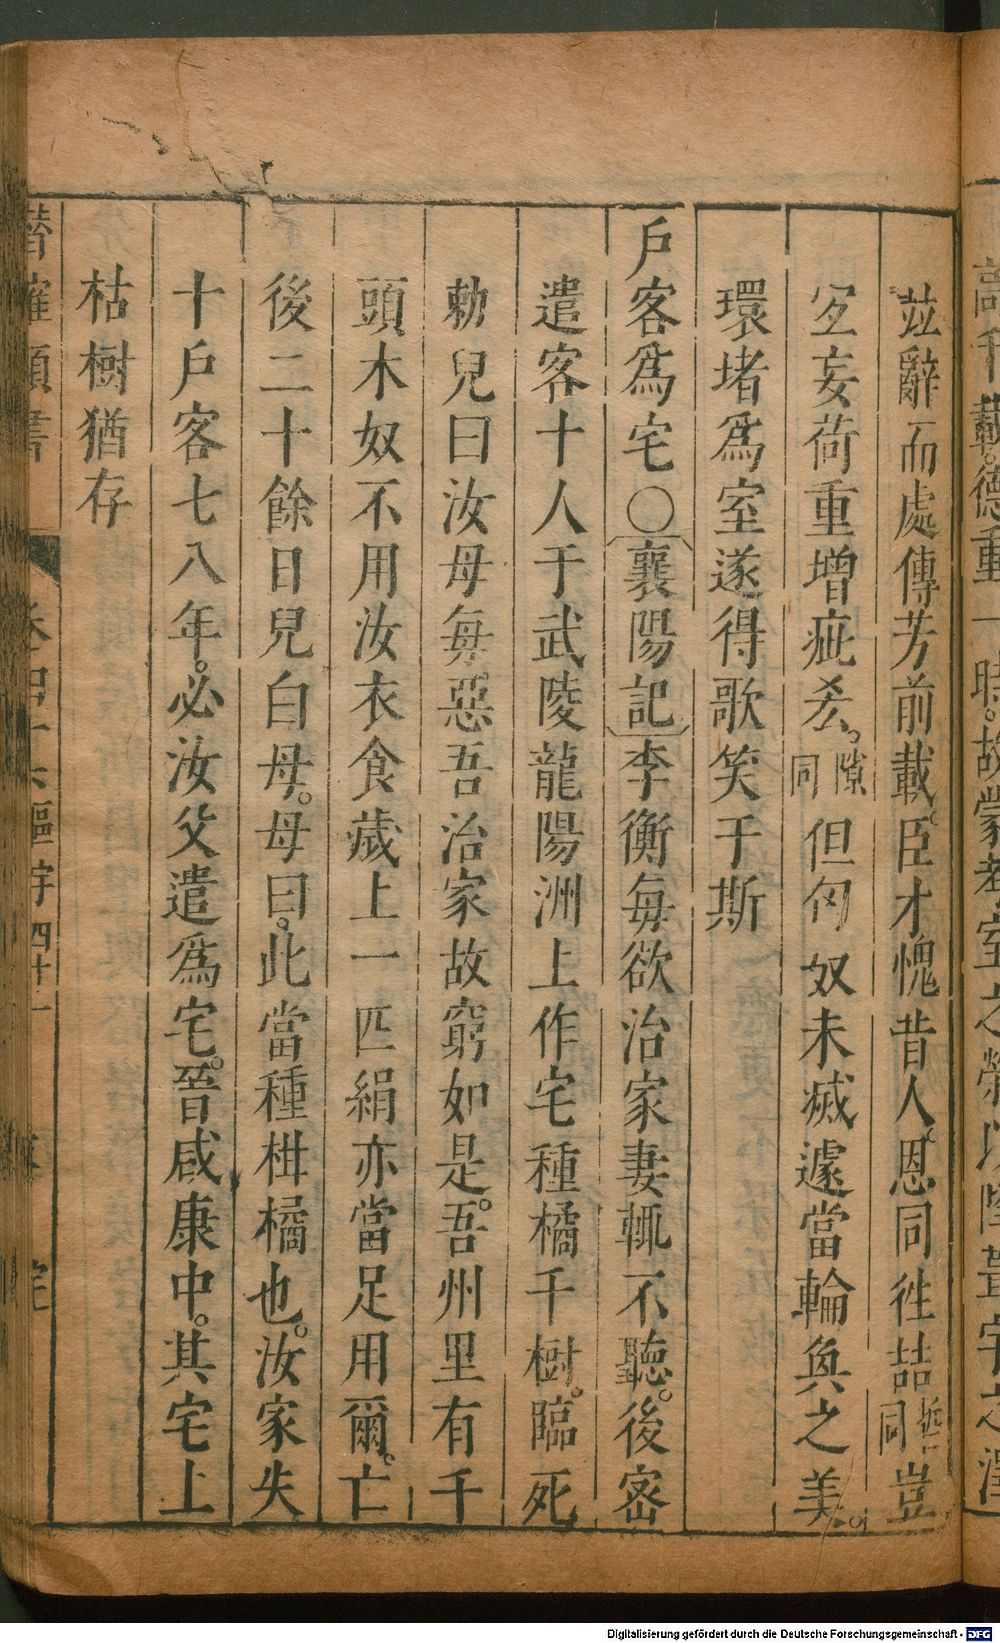 高千載德重一時故蒙考室之榮以隆荁宇之澤
竝辭而處傳芳前載臣才愧昔人恩同徃喆哲同豈
宐妄荷重增疵釁隙同但匈奴未滅遽當輪奐之美
環堵爲室遂得歌笑于斯
戶客爲宅〇襄陽記李衡每欲治家妻輒不聽後密
遣客十人于武陵龍陽洲上作宅種橘千樹臨死
勅兒曰汝母每惡吾治家故窮如是吾州里有千
頭木奴不用汝衣食歲上一匹絹亦當足用爾亡
後二十餘日兒白母母曰此當種柑橘也汝家失
十戶客七八年必汝父遣爲宅晉咸康中其宅上
枯樹猶存
潛確類書 卷四十 區宇四十一
Digitalisierung gefördert durch die Deutsche Forschungsgemeinschaft - DFG